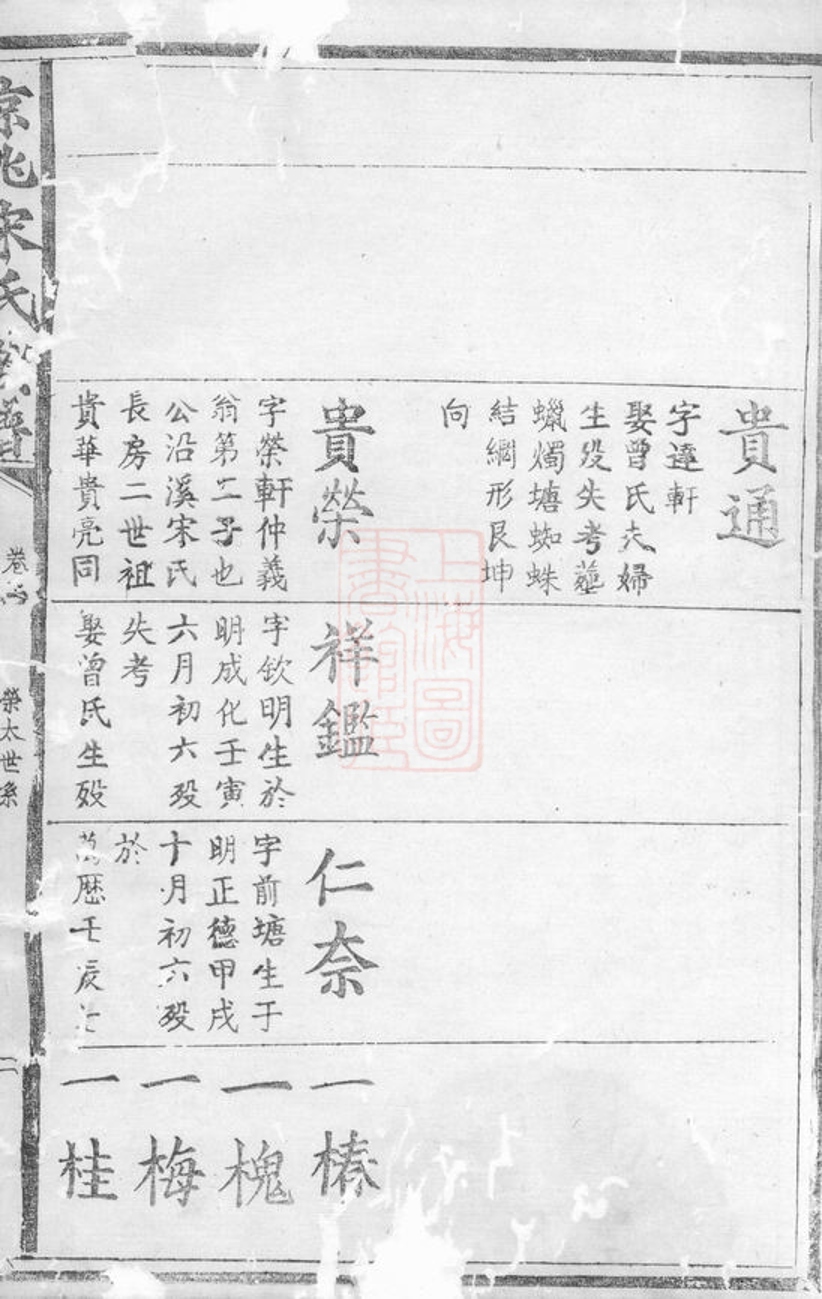 貴通
字達軒
娶曾氏夫婦
生殁失考塟
蠟燭塘蜘蛛
結網形艮坤
向
貴榮
字榮軒仲義
翁第二子也
公沿溪宋氏
長房二世祖
貴華貴亮同
祥鑑
字欽明生於
明成化壬寅
六月初六殁
失考
娶曾氏生殁
仁奈
字前塘生于
明正德甲戌
十月初六殁
於
萬歷壬辰
一椿
一槐
一梅
一桂
京兆宋氏
卷
榮太世系
二
上海圖
書館